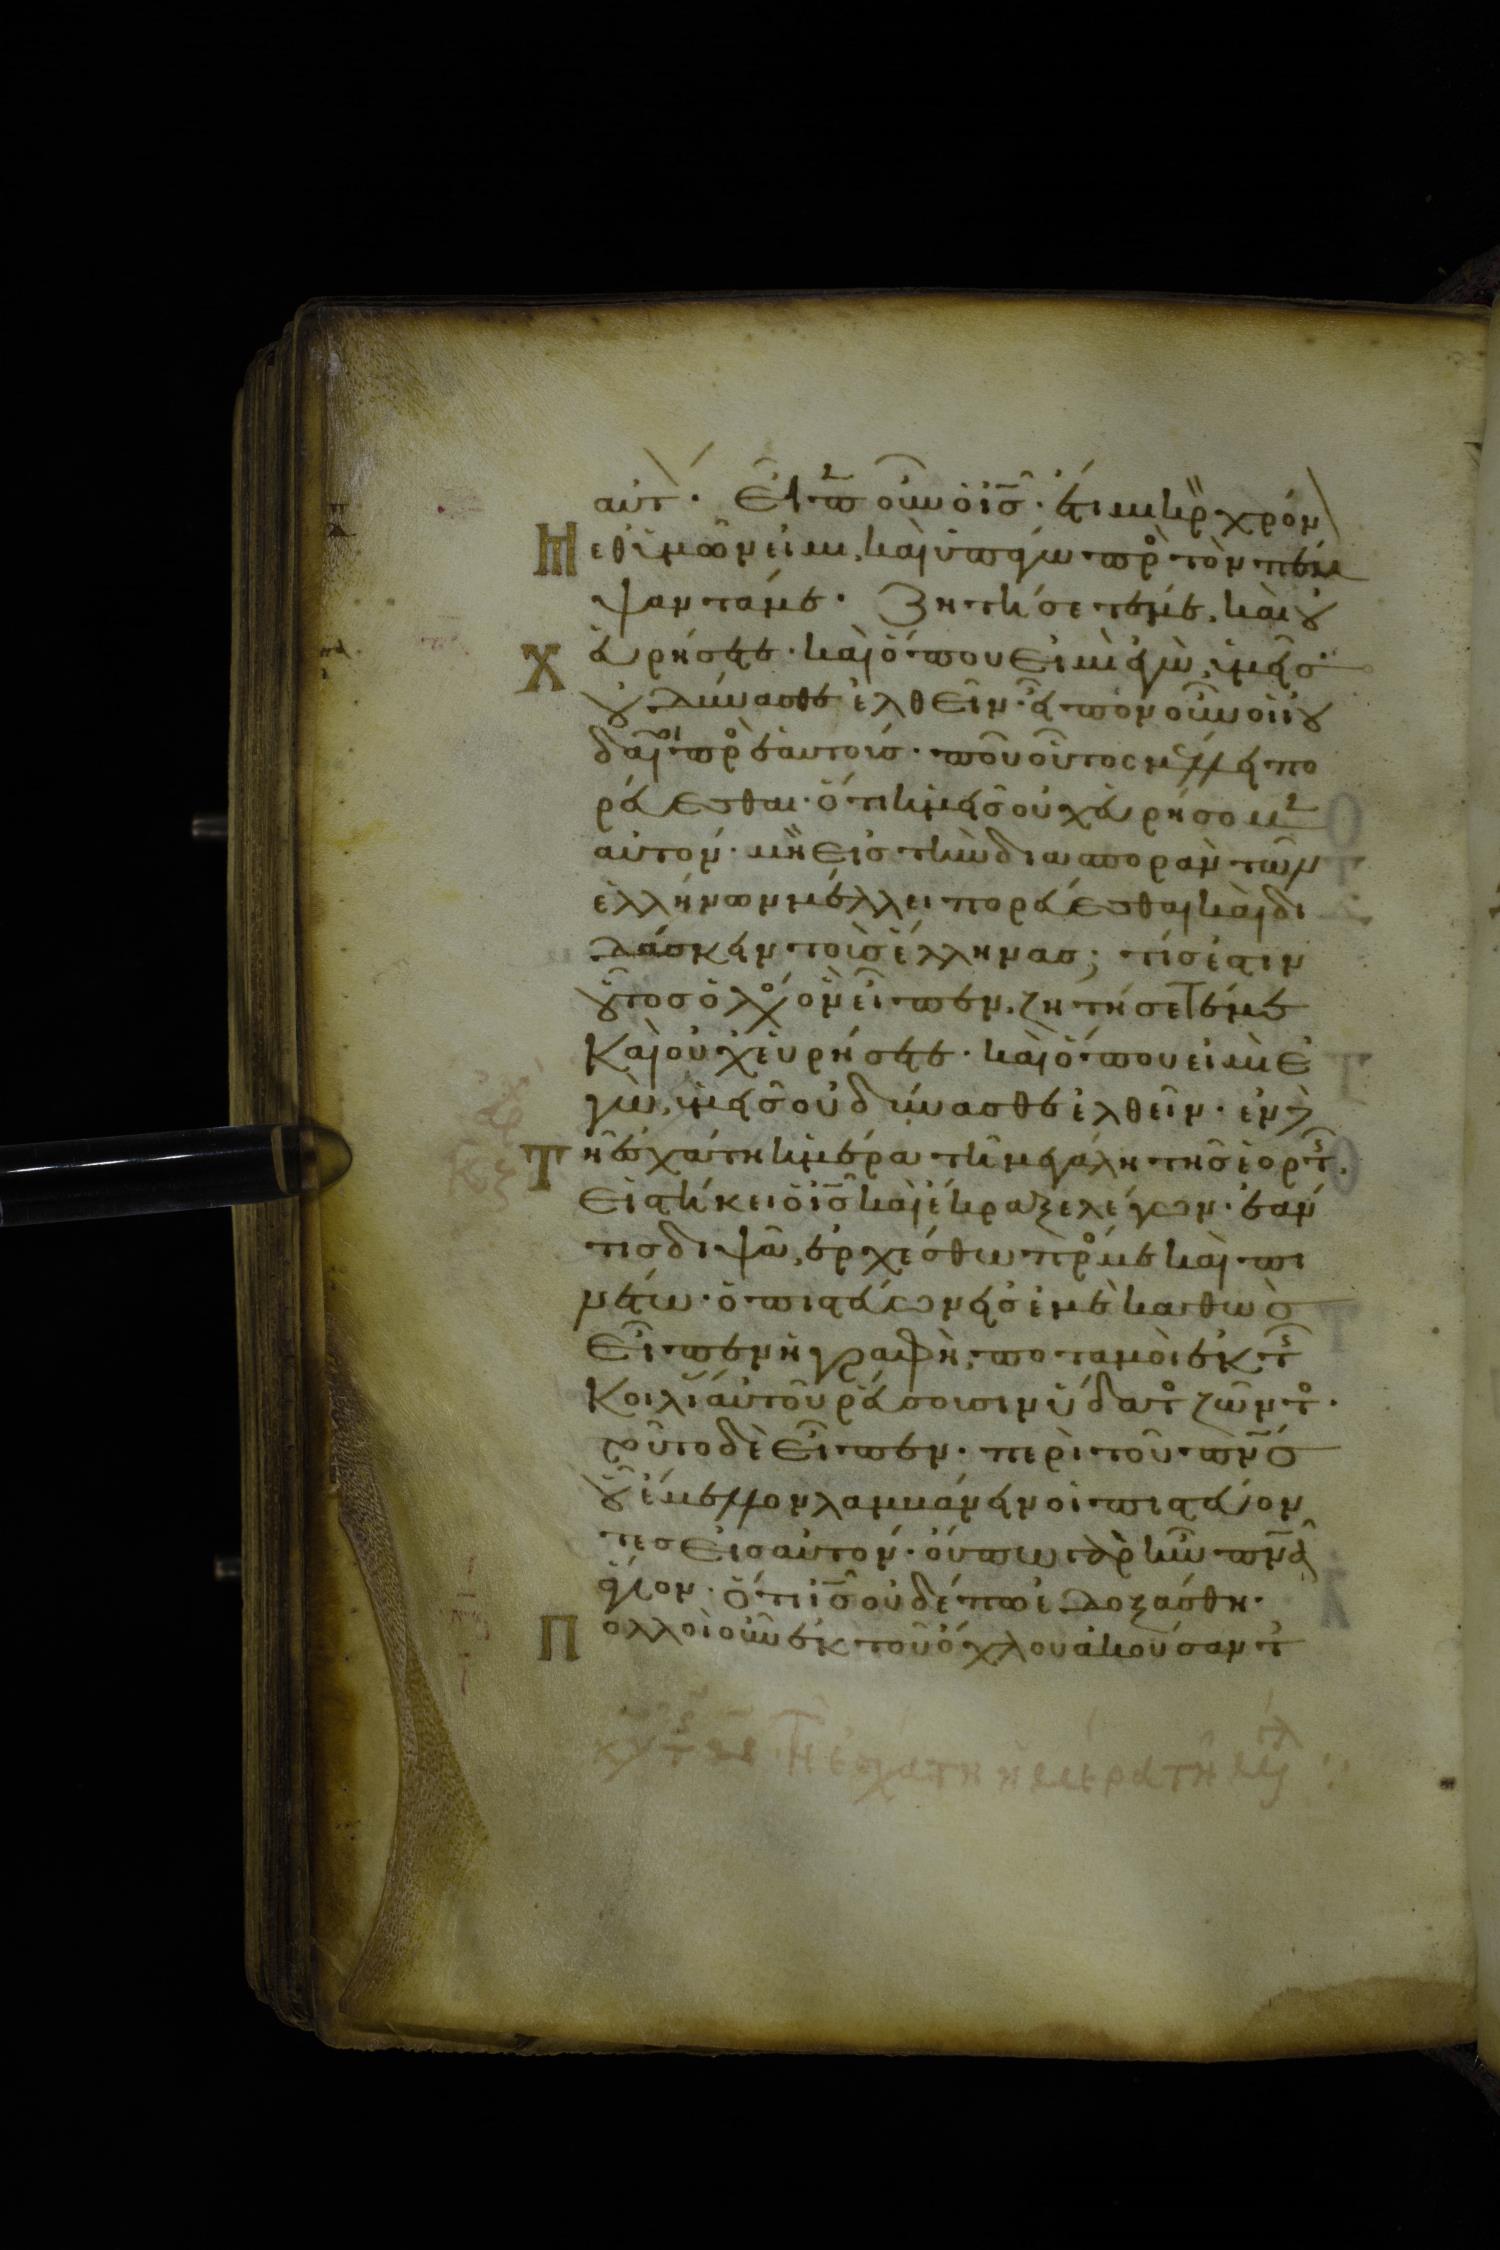 αὐτ· Εἶπ οὖν ὁ ι̅ς̅· ἔτι μικρ χρόν
Μεθ ὑμῶν εἰμι, καὶ ὑπάγω πρ τὸν πέμ
ψαντά με· Ζητήσετέ με, καὶ οὐ
Χ εὑρήσετε· καὶ ὅπου εἰμὶ ἐγὼ, ὑμεῖς
οὐ δύνασθε ἐλθεῖν· εἶπον οὖν οἱ ἰου
δαῖοι πρ ἑαυτοὺς· ποῦ οὗτος μέλλει πο
ρεύεσθαι· ὅτι ἡμεῖς οὐχ εὑρήσομ
αὐτόν· μὴ εἰς τὴν διασπορὰν τῶν
ἑλλήνων μέλλει πορεύεσθαι καὶ δι
δάσκειν τοὺς ἕλληνας; τίς ἐστιν
οὗτος ὁ λόγ ὃν εἶπεν, ζητήσετέ με
Καὶ οὐχ εὑρήσετε· καὶ ὅπου εἰμὶ ἐ
γὼ, ὑμεῖς οὐ δύνασθε ἐλθεῖν· ἐν δὲ
Τῆ ἐσχάτη ἡμέρα τῆ μεγάλη τῆς ἑορτ,
Εἱστήκει ὁ ι̅ς̅ καὶ ἔκραξε λέγων· ἐάν
τις διψᾶ, ἐρχέσθω πρ με καὶ πι
νέτω· ὁ πιστεύων εἰς ἐμὲ καθὼς
Εἶπεν ἡ γραφὴ, ποταμοὶ ἐκ τ
Κοιλί αὐτοῦ ῥεύσουσιν ὕδατ ζῶντ·
τοῦτο δὲ εἶπεν· περὶ τοῦ π̅ν̅ς̅
οὗ ἔμελλον λαμβάνειν οἱ πιστεύον
τες εἰς αὐτόν· οὔπω γὰρ ἦν π̅ν̅α̅
ἅγιον· ὅτι ι̅ς̅ οὐδέπω ἐδοξάσθη·
Πολλοὶ οὖν ἐκ τοῦ ὄχλου ἀκούσαντ
Τῆ ἐσχάτη ἡμέρα τῆ μεγ